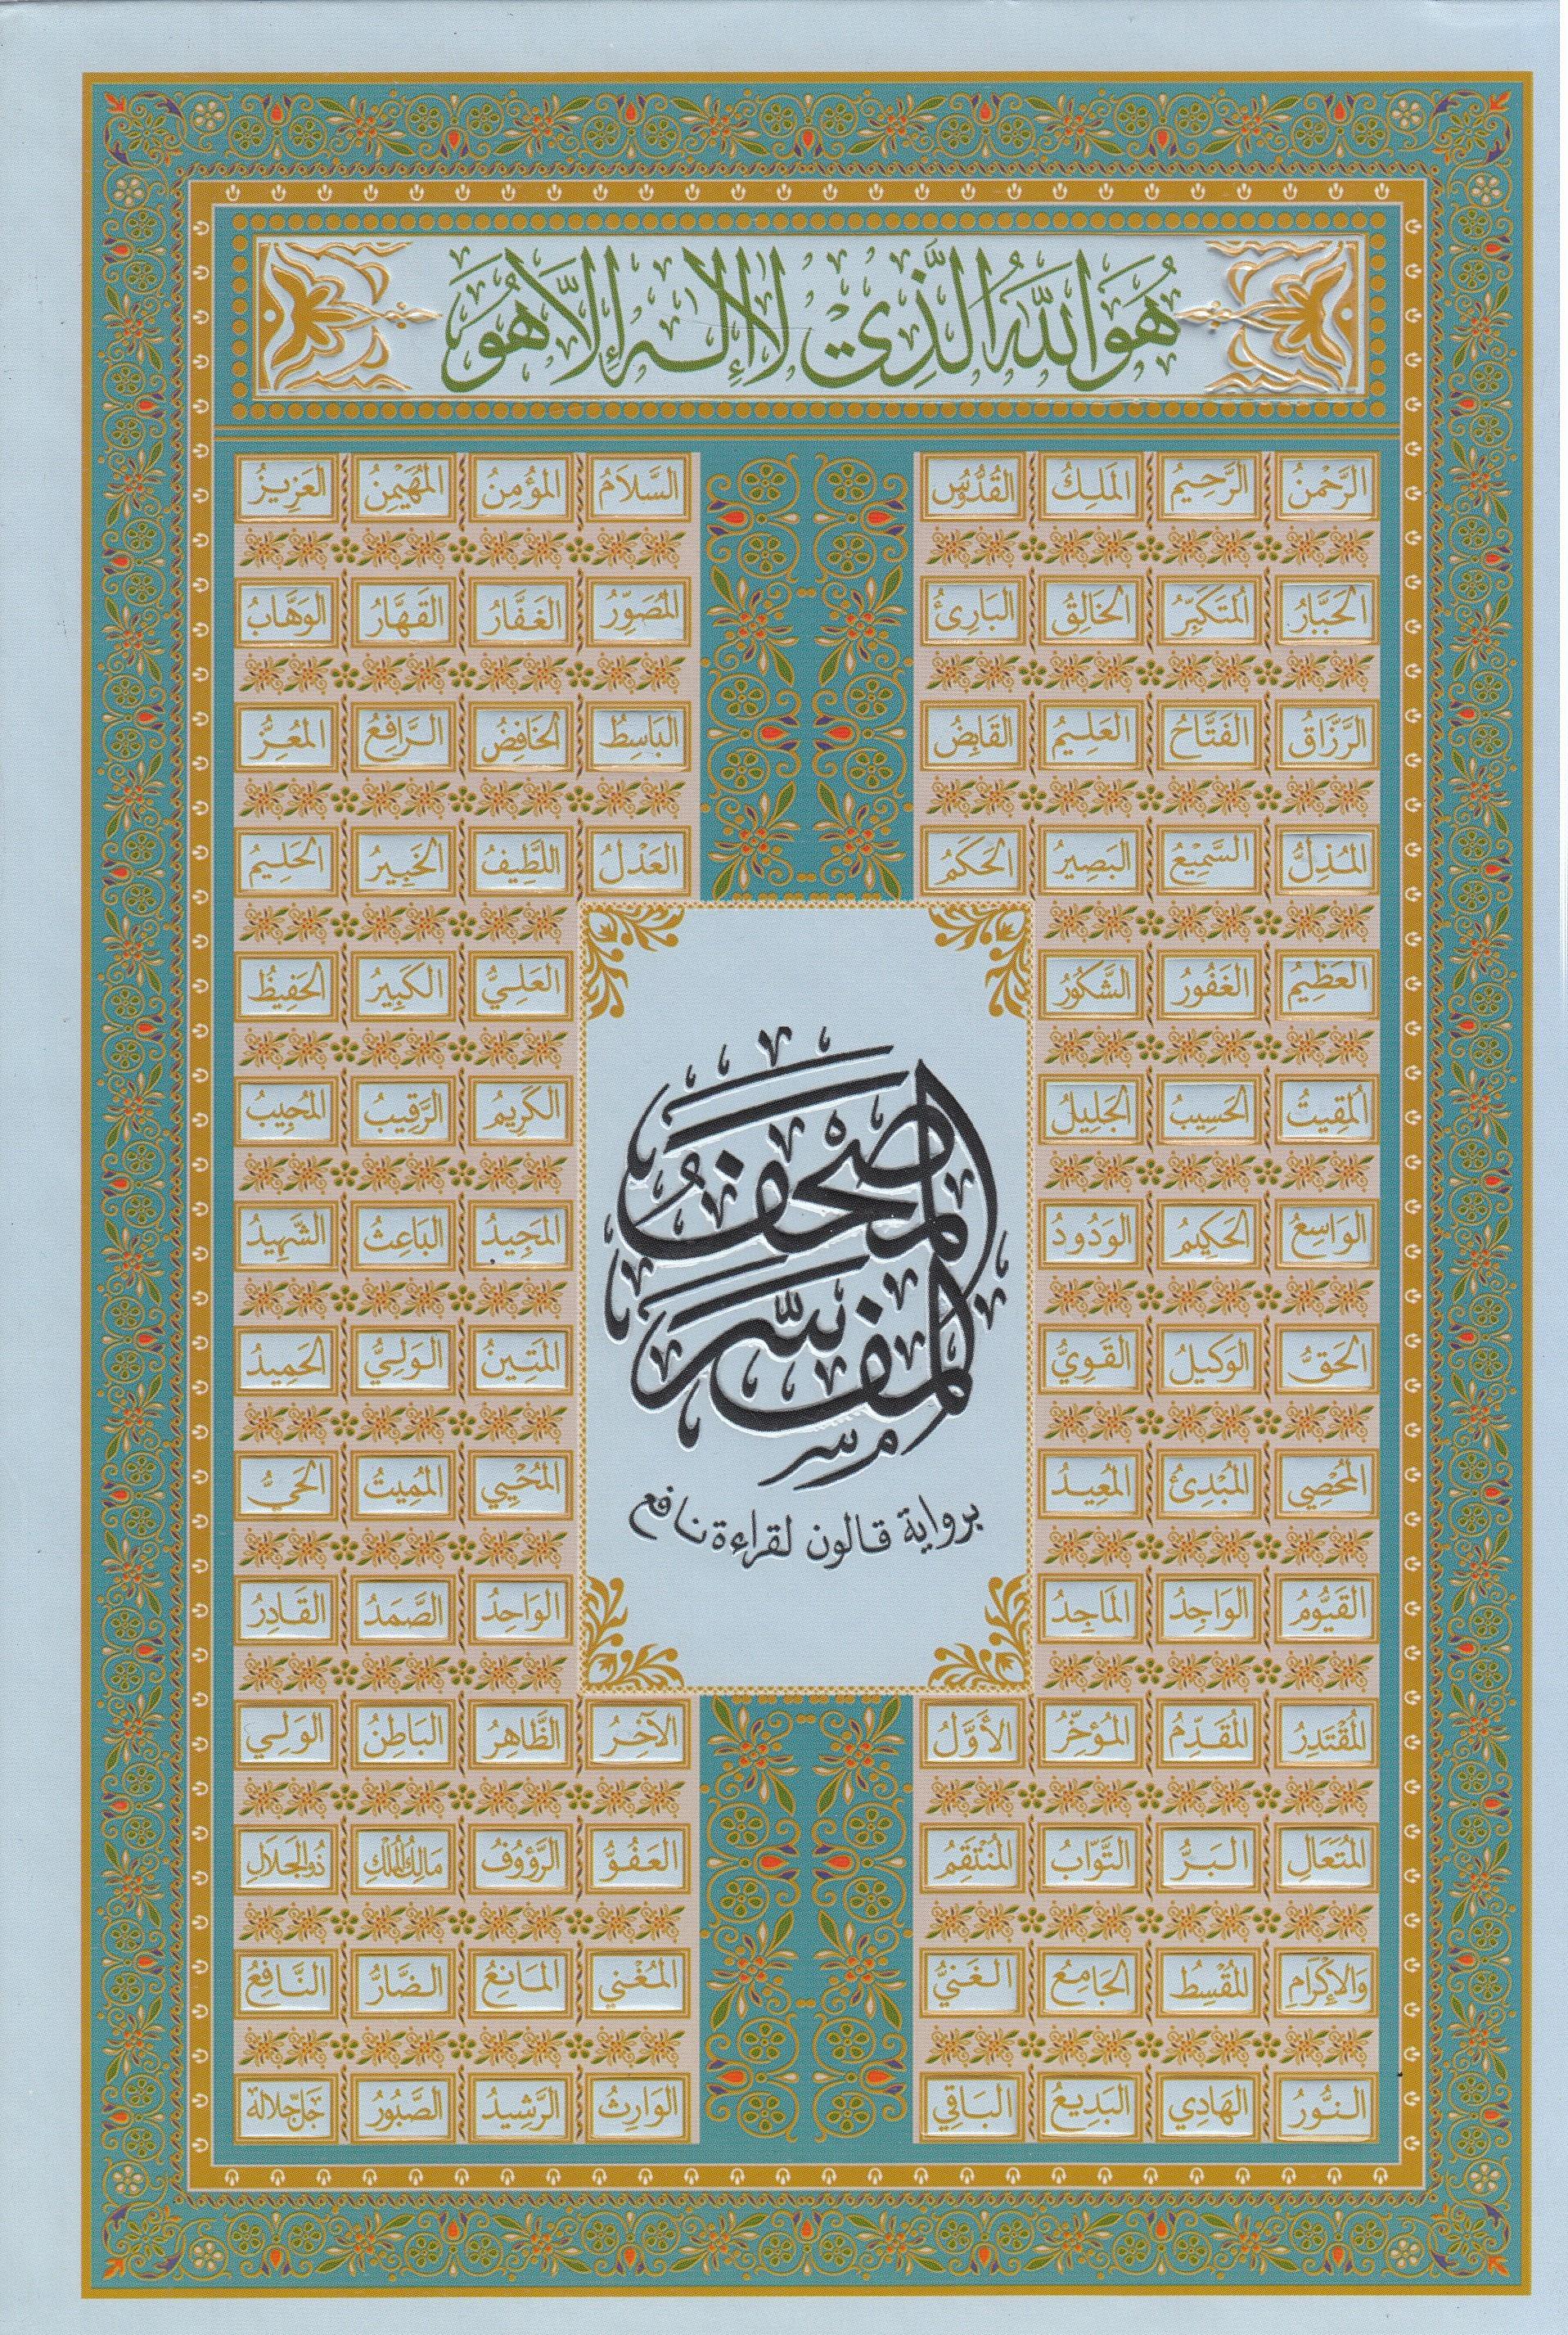 هُوَ اللّٰهُ الَّذِي لَا إِلٰهَ إِلَّا هُوَ
الرَّحْمٰنُ الرَّحِيْمُ المَلِكُ القُدُّوْسُ السَّلاَمُ المُؤْمِنُ المُهَيْمِنُ العَزِيزُ
الجَبَّارُ المُتَكَبِّرُ الخَالِقُ البَارِئُ المُصَوِّرُ الغَفَّارُ القَهَّارُ الوَهَّابُ
الرَّزَّاقُ الفَتَّاحُ العَلِيمُ القَابِضُ البَاسِطُ الخَافِضُ الرَّافِعُ المُعِزُّ
المُذِلُّ السَّمِيْعُ البَصِيرُ الحَكَمُ العَدْلُ اللَّطِيفُ الخَبِيرُ الحَلِيمُ
العَظِيمُ الغَفُورُ الشَّكُورُ العَلِيُّ الكَبِيرُ الحَفِيظُ
المُقِيتُ الحَسِيبُ الجَلِيلُ الكَرِيمُ الرَّقِيبُ المُجِيبُ
الوَاسِعُ الحَكِيمُ الوَدُودُ المَجِيدُ البَاعِثُ الشَّهِيدُ
الحَقُّ الوَكِيلُ القَوِيُّ المَتِينُ الوَلِيُّ الحَمِيدُ
المُحْصِي المُبْدِئُ المُعِيدُ المُحْيِي المُمِيتُ الحَيُّ
القَيُّومُ الوَاجِدُ المَاجِدُ الوَاحِدُ الصَّمَدُ القَادِرُ
المُقْتَدِرُ المُقَدِّمُ المُؤَخِّرُ الأَوَّلُ الآخِرُ الظَّاهِرُ البَاطِنُ الوَلِي
المُتَعَالِ البَرُّ التَّوَّابُ المُنْتَقِمُ العَفُوُّ الرَّؤُوفُ مَالِكُ المُلْكِ ذُو الجَلَالِ
وَالإِكْرَامِ المُقْسِطُ الجَامِعُ الغَنِيُّ المُغْنِي المَانِعُ الضَّارُّ النَّافِعُ
النُّورُ الهَادِي البَدِيعُ البَاقِي الوَارِثُ الرَّشِيدُ الصَّبُورُ جَلَّ جَلاله
المصْحَفُ
المفسَّر
برواية قالون لقراءة نافع